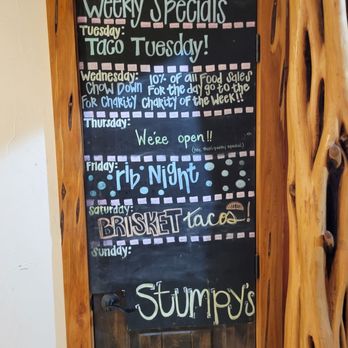 Weekly Specials
Tuesday:
Taco Tuesday!
Wednesday: 10% of all Food Sales
CHOW DOWN For the day go to the
FOR CHARITY Charity of the Week!!
Thursday:
We're open!!
Friday: rib Night
Saturday:
BRISKET tacos!
Sunday:
Stumpy's